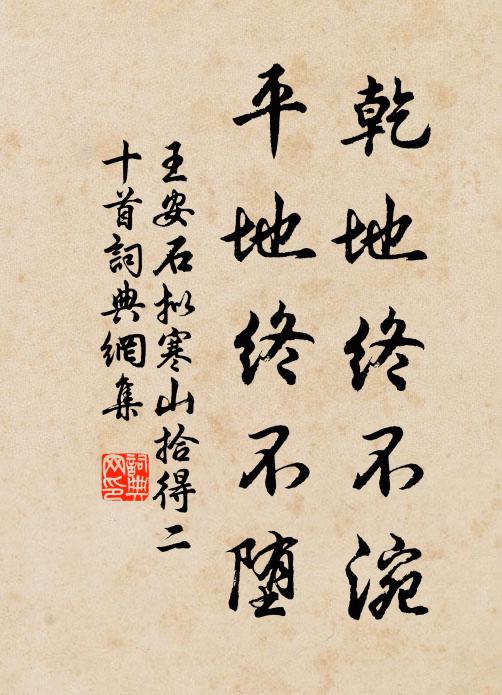 乾地终不涴
平地终不堕
王安石拟寒山拾得二
十首詞典網集
詞典网印